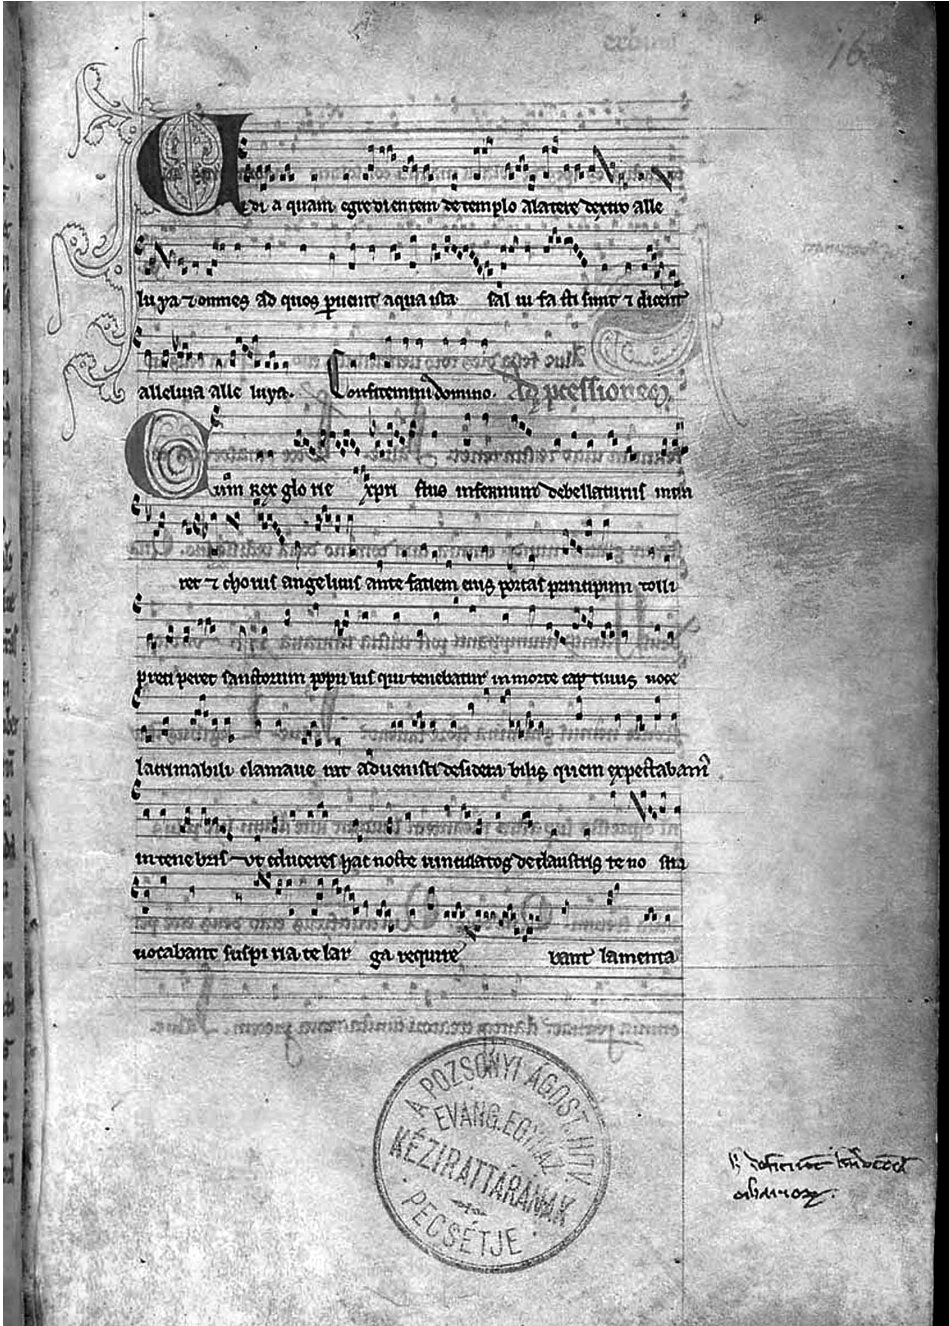 16
Vidi a quam egredientem de templo a latere dextro alle
luya ⁊ omnes ad quos puenit aqua ista sal ui fa cti sunt ⁊ dicent
alleluia alle luya. Confitemini domino. Ad pcessionem.
Cum rex glo rie xpri stus infernum debellaturus intra
ret ⁊ chorus angelicus ante faciem eius portas principum tolli
preci peret sanctorum popu lus qui tenebatur in morte cap tiuus uoce
lacrimabili clamaue rat aduenisti desidera bilis quem expectabam
in tene bris ut educeres hac nocte uinculatos de claustris te no stra
uocabant suspi ria te lar ga require bant lamenta
A POZSONYI ÁGOST. HITV.
EVANG. EGYHÁZ
KÉZIRATTÁRÁNAK
PECSÉTJE